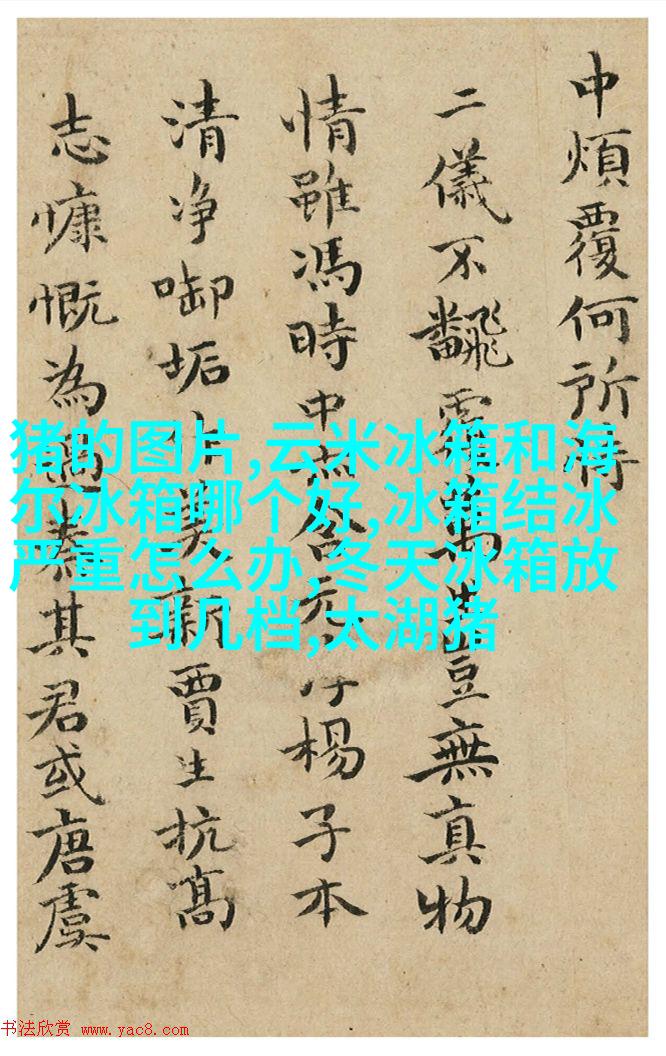 中煩覆何所得
二儀不飜萬豈無真物
情雖馮時中楊子本
清净啣垢新賈生抗髙
志慷慨為其君或唐虞
猪的图片,云米冰箱和海
尔冰箱哪个好,冰箱结冰
严重怎么办,冬天冰箱放
到几档,太湖猪
书法欣赏 www.yac8.com